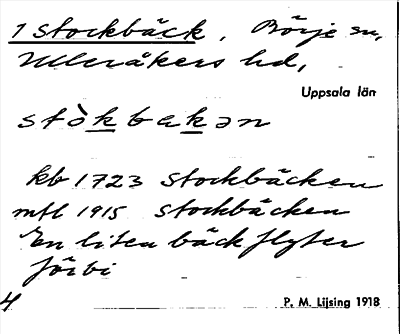 1 Stockbäck, Börje sn,
Ulleråkers hd,
Uppsala län
stòkbakən
kb 1723 Stockbäcken
mtl 1915 Stockbäcken
En liten bäck flyter
förbi
4
P. M. Lijsing 1918